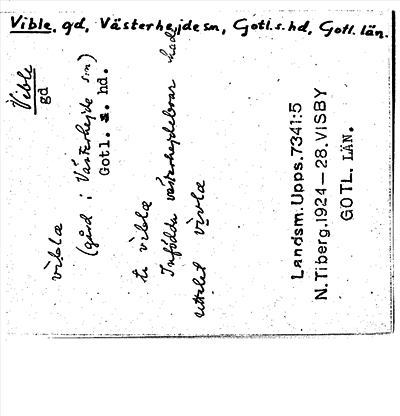 Vible, gd, Västerhejde sn, Gotl. s. hd, Gotl. län.
Vible
gd
viblæ
(gård i Västerhejde sn)
Gotl. s. hd.
ti viblæ
Infödda västerhejdebor had
uttalet vivlæ
Landsm. Upps. 7341:5
N. Tiberg. 1924-28. VISBY
GOTL. LÄN.